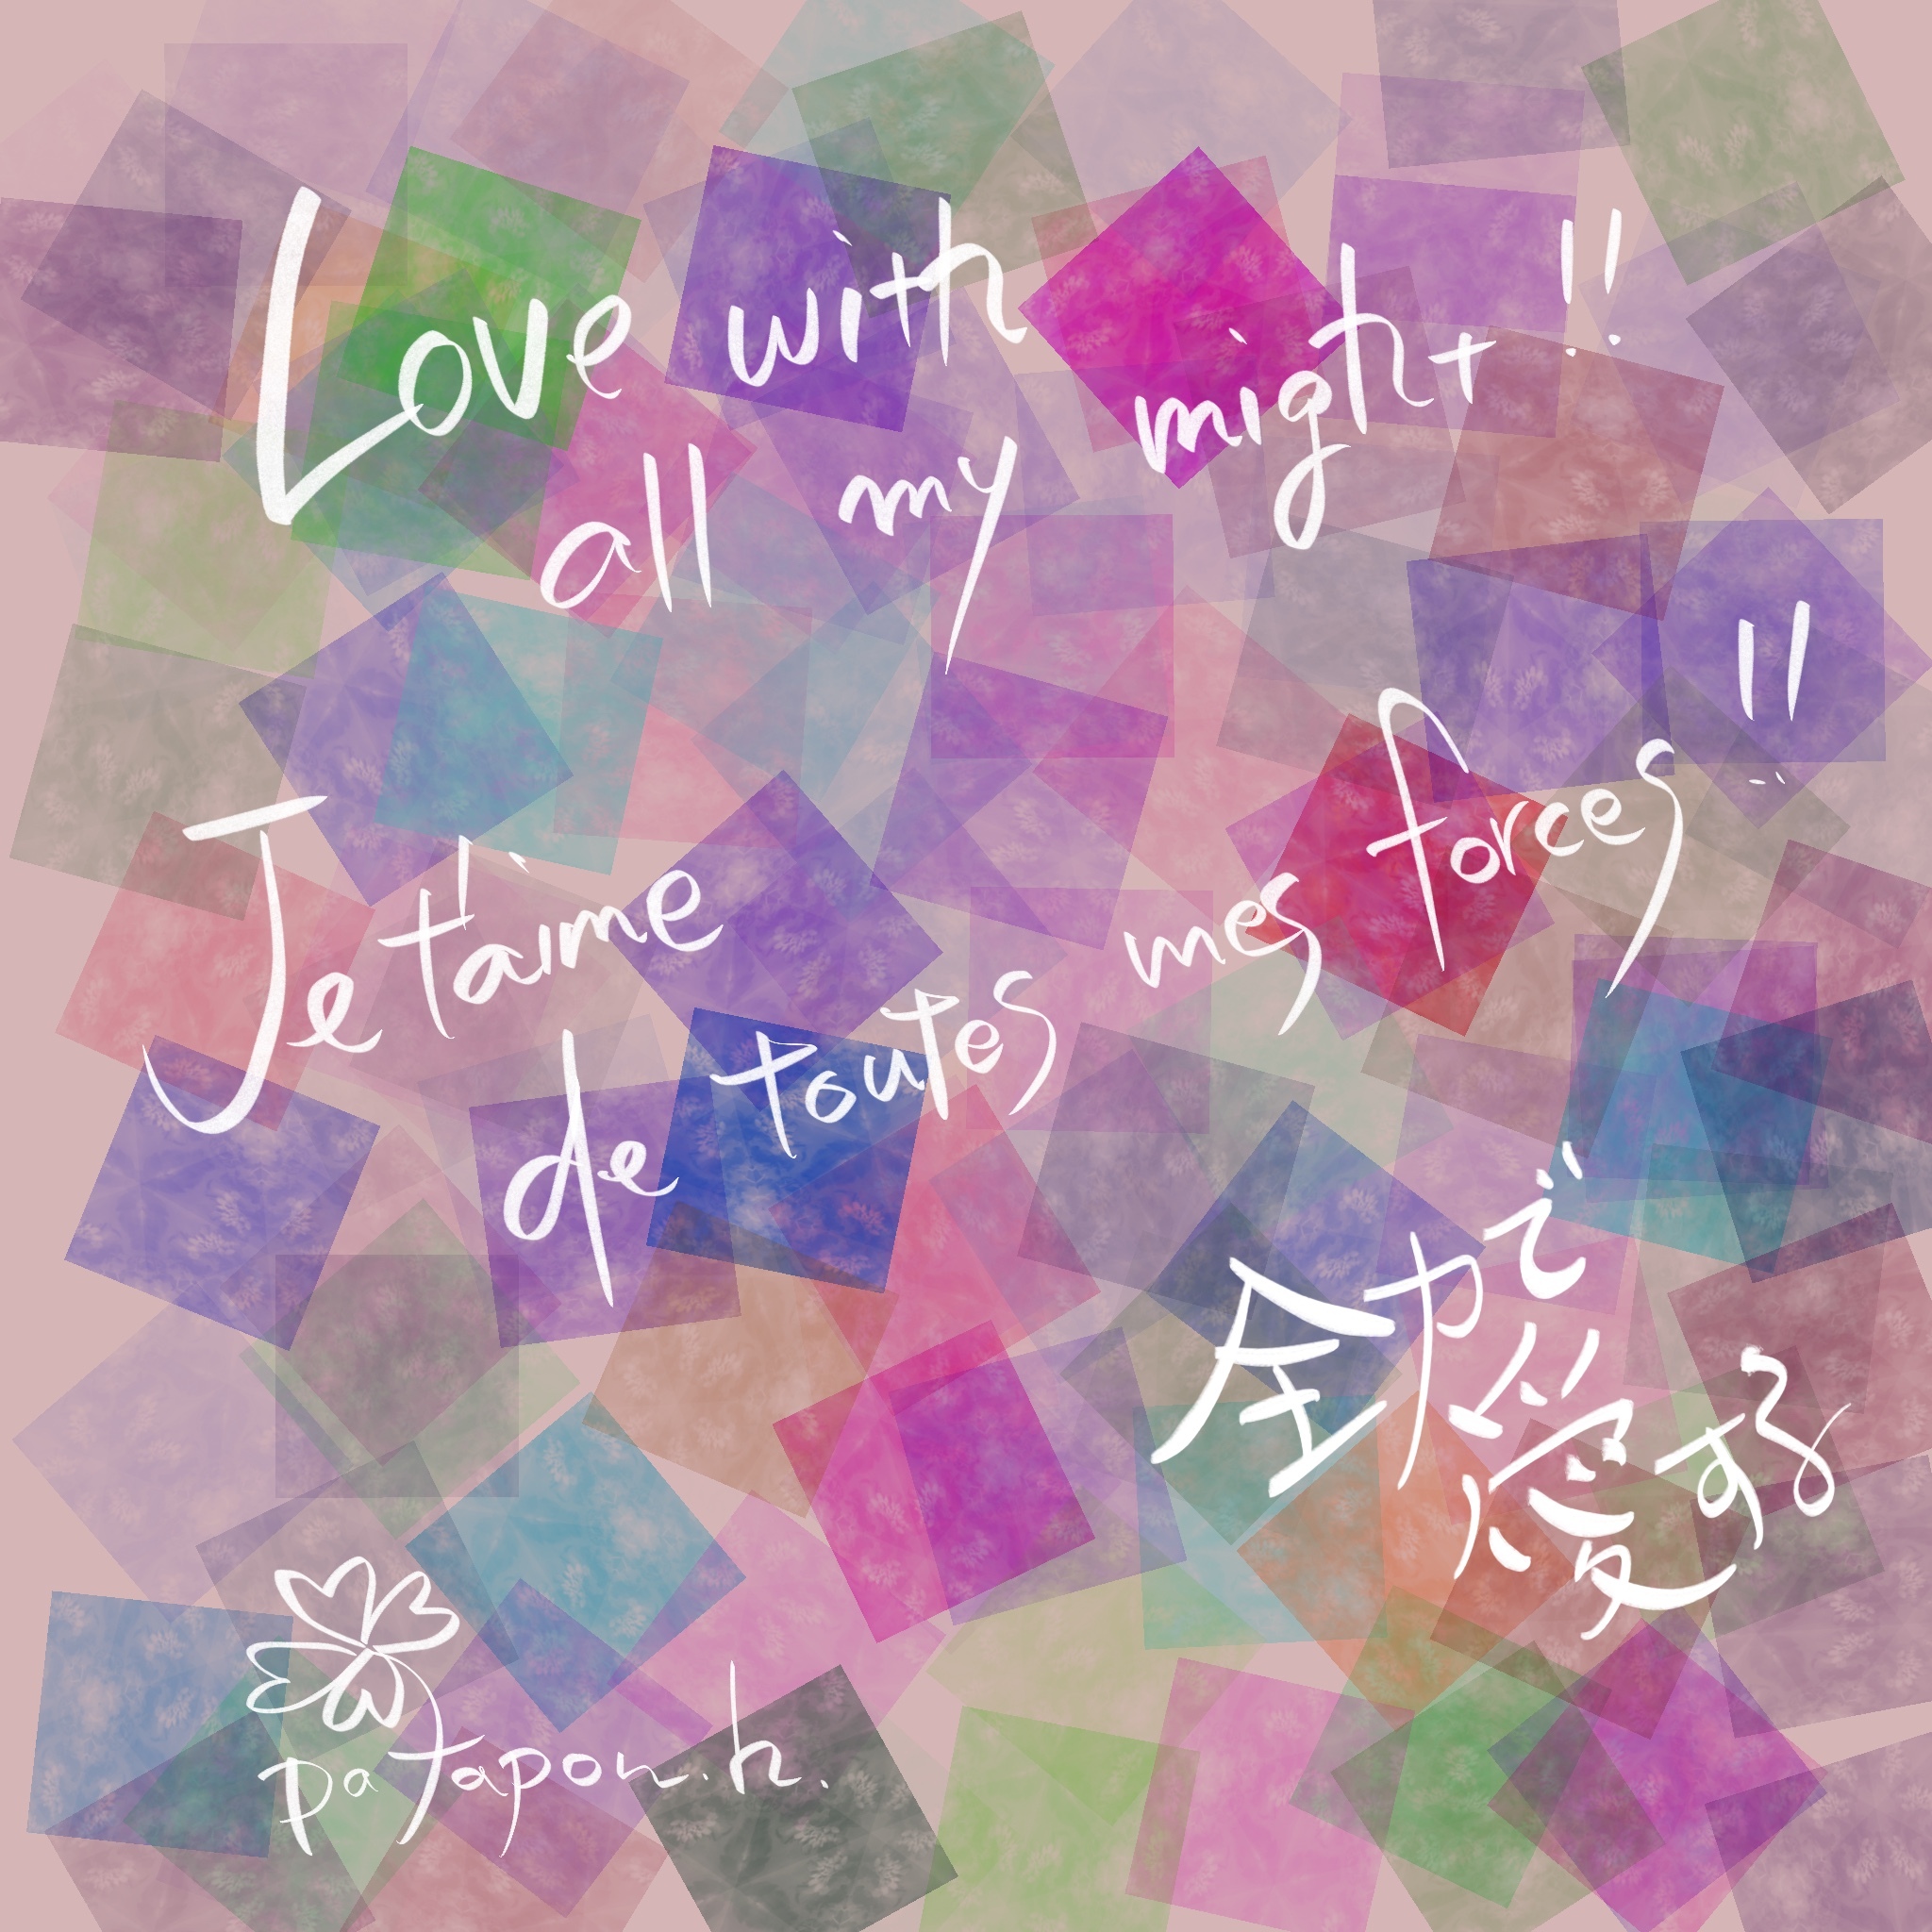 Love with
all my might!!
Je t'aime
de toutes mes forces!!
全力で
愛する
patapon.h.